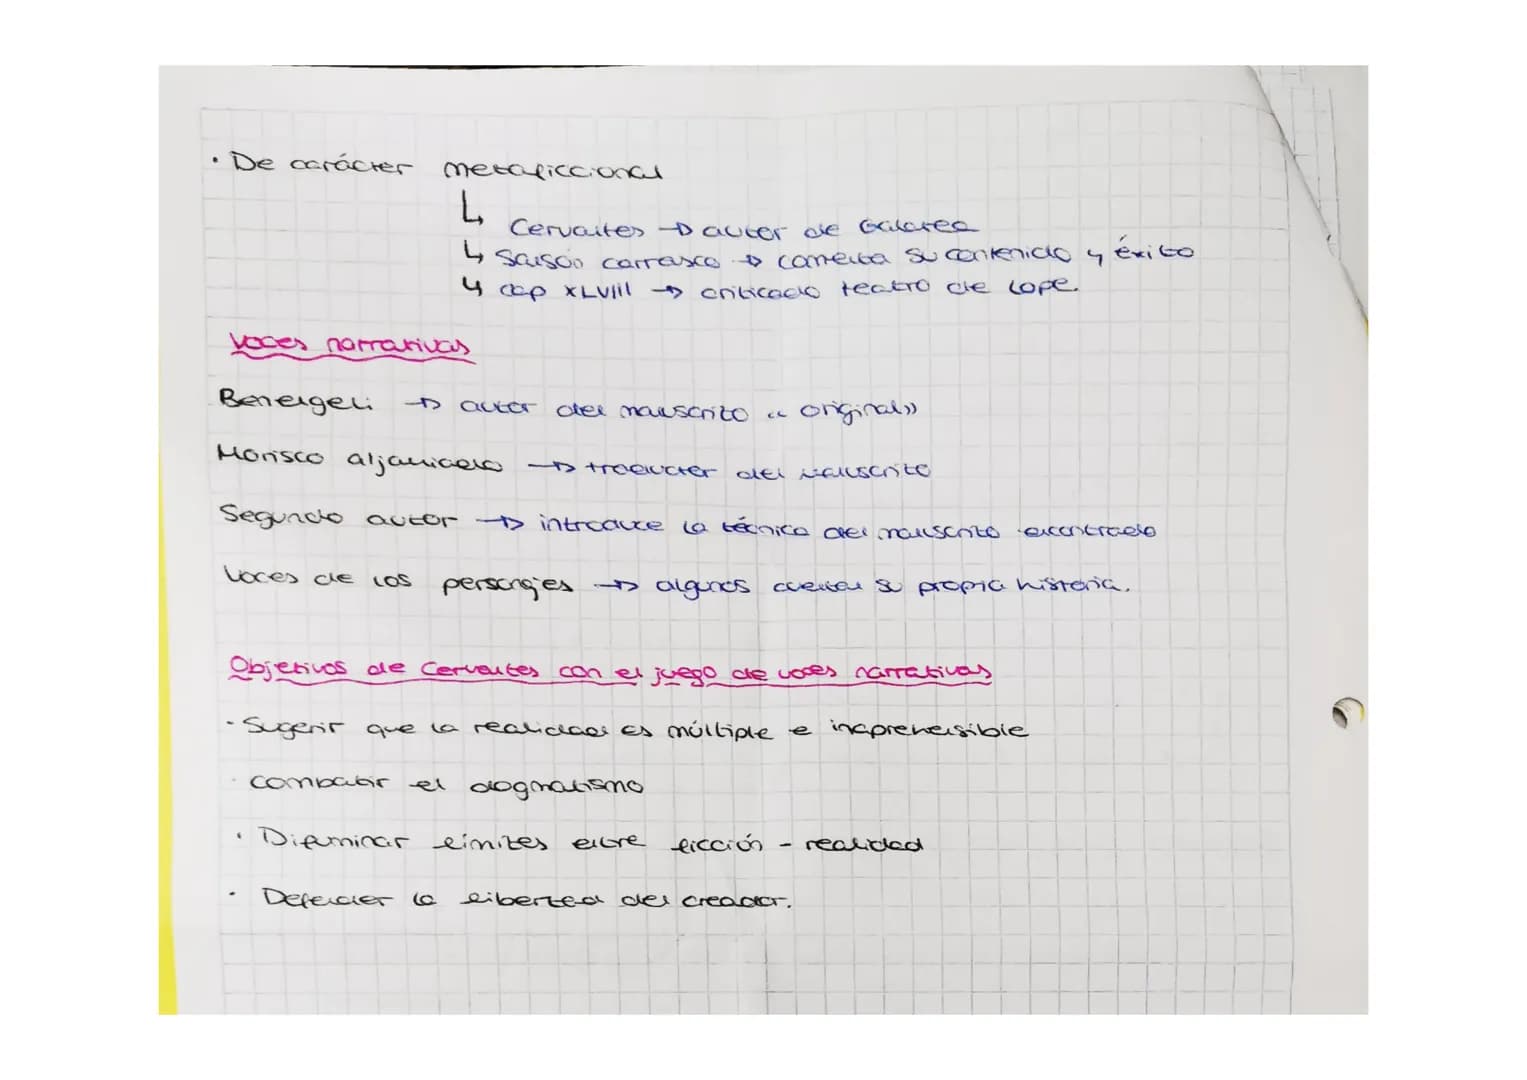 · De carácter metaficcional
↳ Cervantes → autor de Galatea
↳ Sansón carrasco → comenta su contenido y éxito
↳ cap XLVIII → criticado teatro de Lope.
Voces narrativas
Benengeli → autor del manuscrito «original»
Morisco aljamiado → traductor del manuscrito
Segundo autor → introduce la técnica del manuscrito encontrado
Voces de los personajes → algunos cuentan su propia historia.
Objetivos de Cervantes con el juego de voces narrativas
· Sugerir que la realidad es múltiple e inaprehensible
· combatir el dogmatismo
· Difuminar límites entre ficción - realidad
· Defender la libertad del creador.